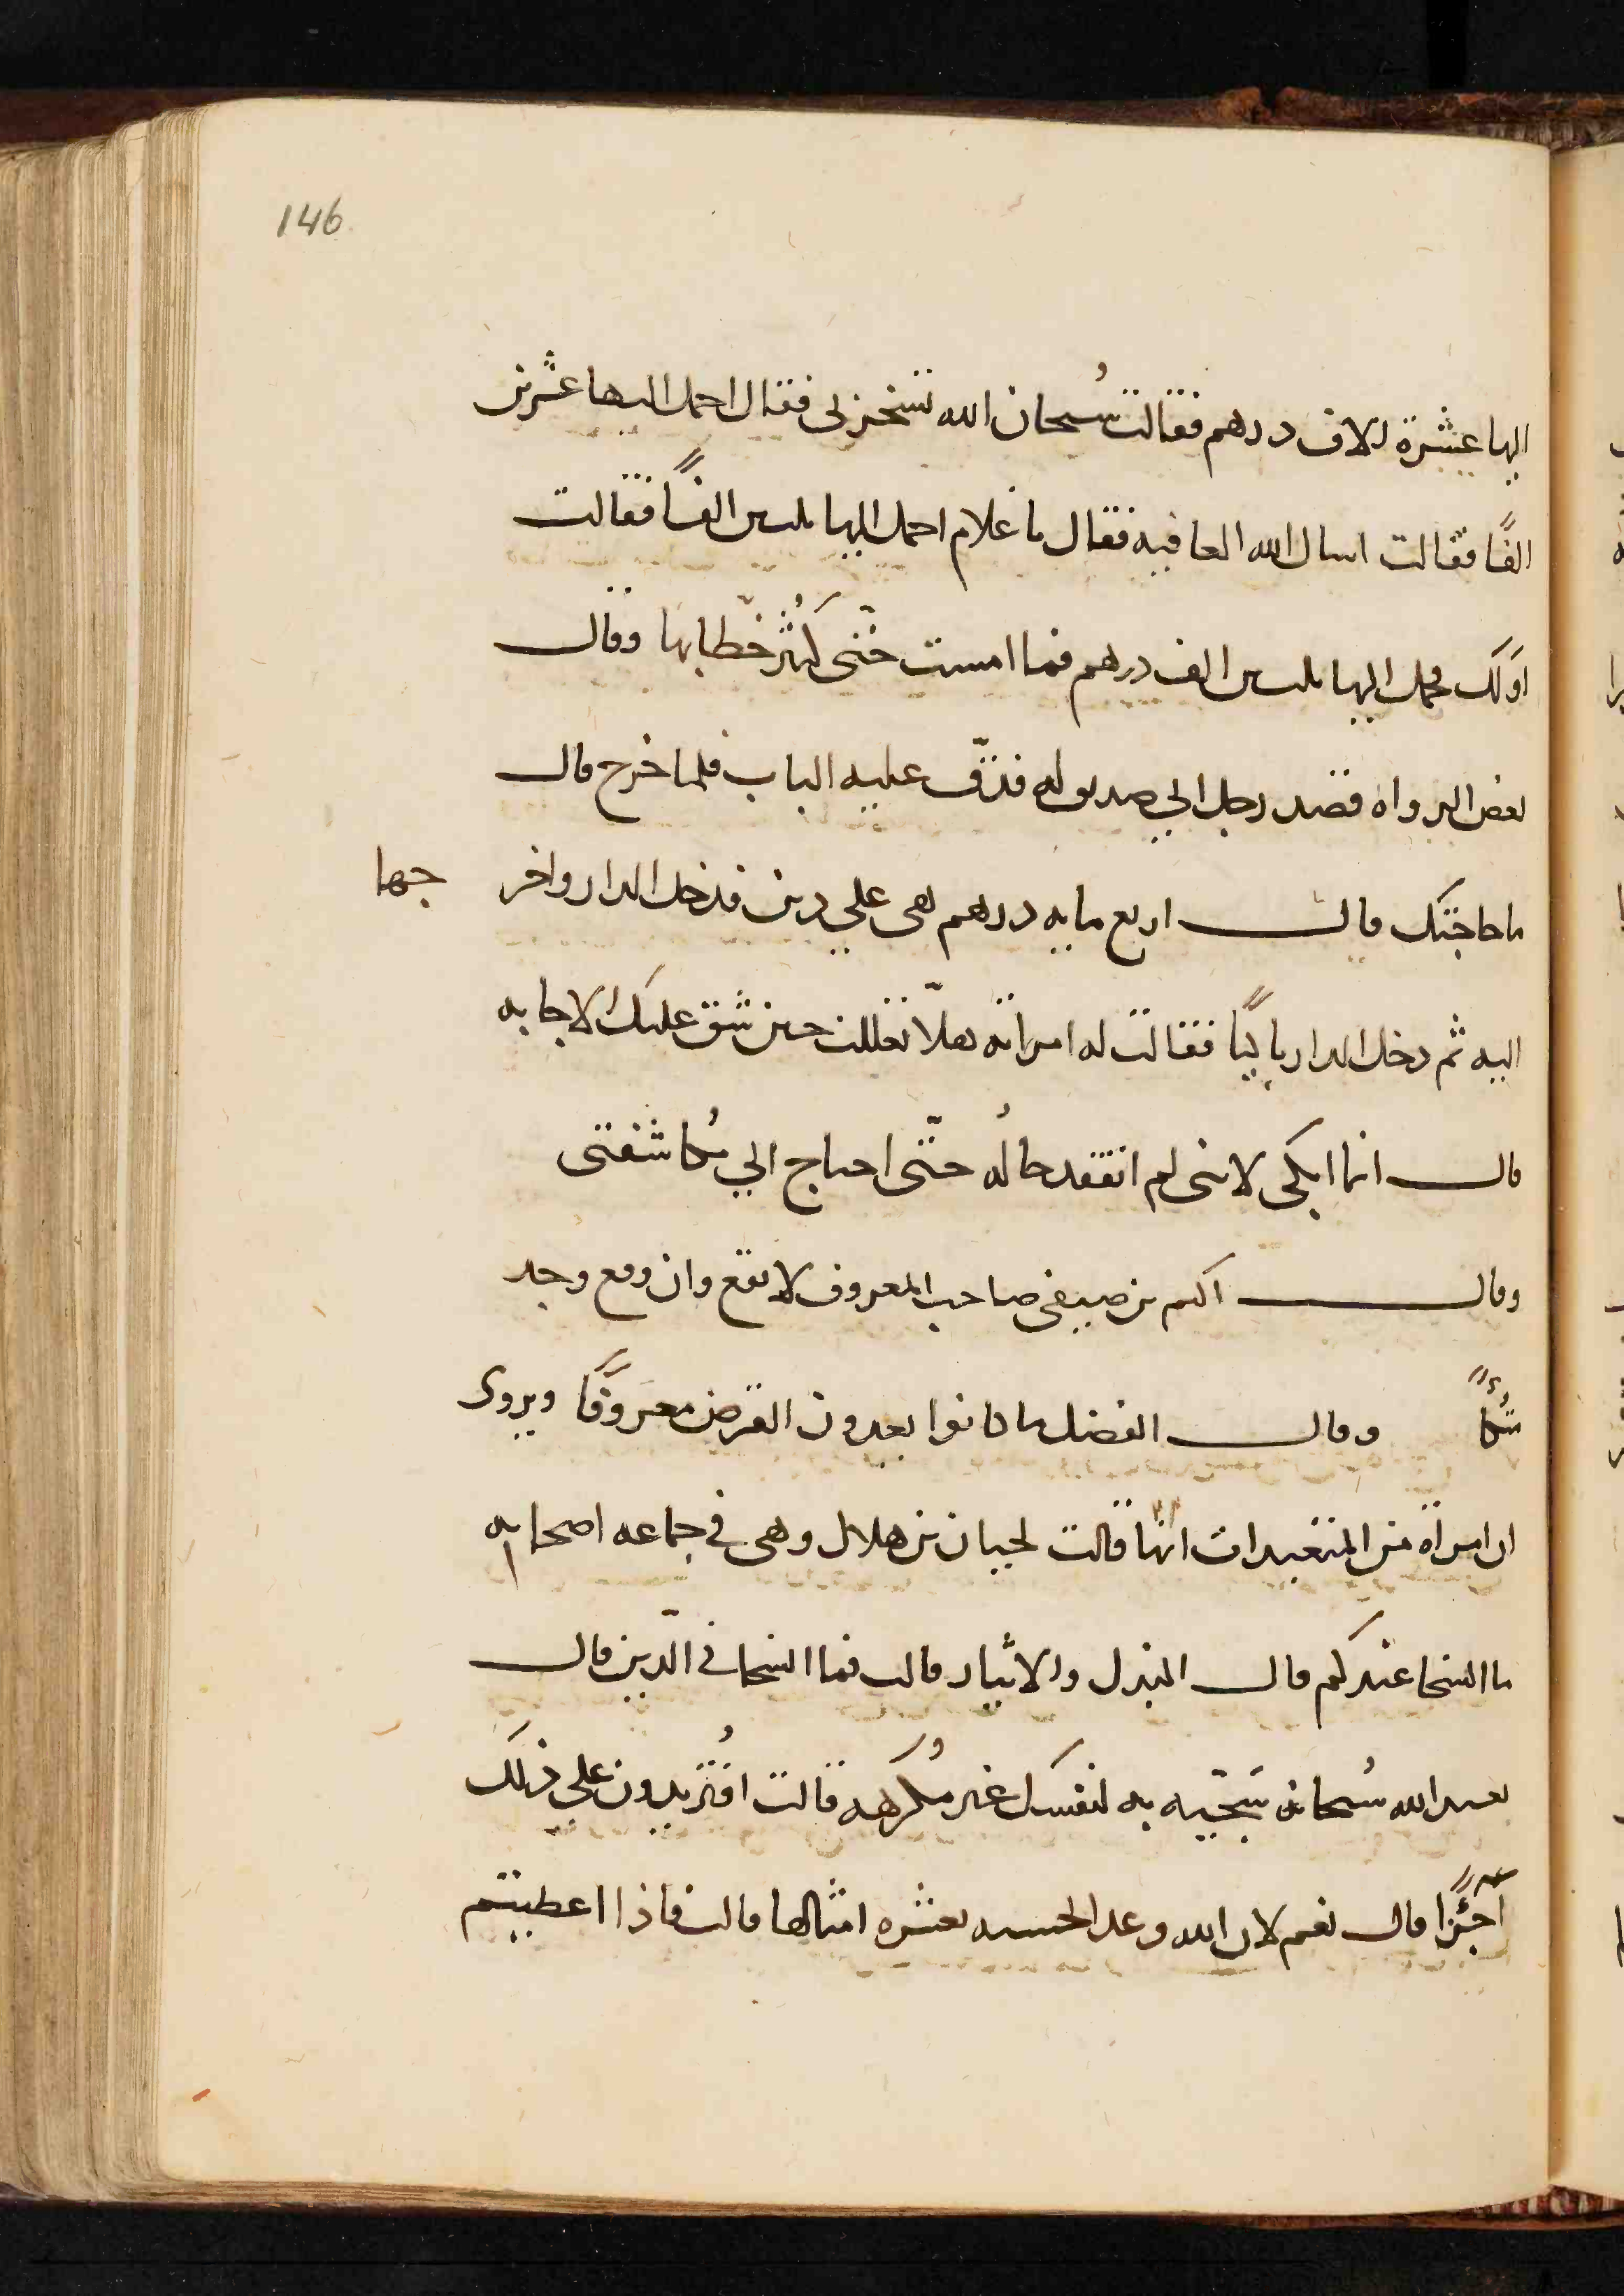 146
اليها عشرة الاف درهم فقالت سُبحان الله تسخر بى فقال احمل اليها عشرين
الفًا فقالت اسال الله العافيه فقال يا غلام احمل اليها ثلثين الفًا فقالت
اوَلك فحمل اليها ثلثين الف درهم فما امست حتّى كَثُر خطّابها وقال
بعض الرواه قصد رجل الي صديق له فدقّ عليه الباب فلما خرج قال
ما حاجتك قال اربع مايه درهم هى علي دين فدخل الدار واخر جها
اليه ثم دخل الدار باكيًا فقالت له امراته هلّا تعللت حين شق عليك الاجابه
قال انما ابكى لاننى لم اتفقد حالُه حتّى احتاج الي مُكاشفتى
وقال اكثم بن صيفى صاحب المعروف لا يقع وان وقع وجد
متكًا وقال الفضل ما كانوا يعدون القرض معروفًا ويروى
ان امراة من المتعبدات انها قالت لحبان بن هلال وهى في جماعه اصحابه
ما السخا عندكم قال البذل والايثار قالت فما السخا فى الدّين قال
تعبد الله سُبحانه سَخيّه به لنفسك غير مُكرهه قالت افتُريدون علي ذلك
اجرًا قال نعم لان الله وعد الحسنه بعشره امثالها قالت فاذا اعطيتم